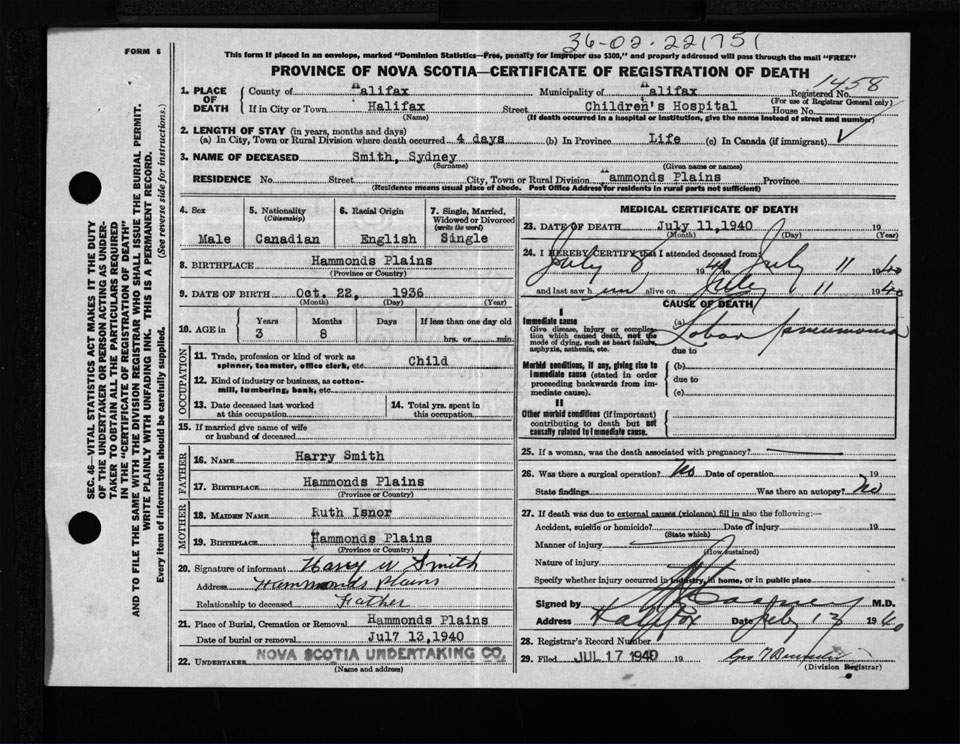 36-02-221751
FORM 6
This form if placed in an envelope, marked "Dominion Statistics—Free, penalty for improper use $300," and properly addressed will pass through the mail "FREE"
PROVINCE OF NOVA SCOTIA—CERTIFICATE OF REGISTRATION OF DEATH
1458
1. PLACE OF DEATH
County of Halifax Municipality of Halifax Registered No.
(For use of Registrar General only)
If in City or Town Halifax Street Children's Hospital House No.
(Name) (If death occurred in a hospital or institution, give the name instead of street and number)
2. LENGTH OF STAY (in years, months and days)
(a) In City, Town or Rural Division where death occurred 4 days (b) In Province Life (c) In Canada (if immigrant)
3. NAME OF DECEASED Smith, Sydney
(Surname) (Given name or names)
RESIDENCE No. Street City, Town or Rural Division Hammonds Plains Province
(Residence means usual place of abode. Post Office Address for residents in rural parts not sufficient)
4. Sex 5. Nationality 6. Racial Origin 7. Single, Married,
(Citizenship) Widowed or Divorced
(write the word)
Male Canadian English Single
8. BIRTHPLACE Hammonds Plains
(Province or Country)
9. DATE OF BIRTH Oct. 22, 1936
(Month) (Day) (Year)
10. AGE in Years Months Days If less than one day old
3 8 hrs. or min.
OCCUPATION
11. Trade, profession or kind of work as
spinner, teamster, office clerk, etc. Child
12. Kind of industry or business, as cotton-
mill, lumbering, bank, etc.
13. Date deceased last worked 14. Total yrs. spent in
at this occupation this occupation
15. If married give name of wife
or husband of deceased
FATHER
16. NAME Harry Smith
17. BIRTHPLACE Hammonds Plains
(Province or Country)
MOTHER
18. MAIDEN NAME Ruth Isnor
19. BIRTHPLACE Hammonds Plains
(Province or Country)
20. Signature of informant Harry W Smith
Address Hammonds Plains
Relationship to deceased Father
21. Place of Burial, Cremation or Removal Hammonds Plains
Date of burial or removal Jul7 13,1940
22. UNDERTAKER NOVA SCOTIA UNDERTAKING CO.
(Name and address)
MEDICAL CERTIFICATE OF DEATH
23. DATE OF DEATH July 11,1940
(Month) (Day) (Year)
24. I HEREBY CERTIFY that I attended deceased from:
July 8, 1940 to July 11 1940
and last saw him alive on July 11 1940
CAUSE OF DEATH
I
Immediate cause (a) Lobar pneumonia
Give disease, injury or complica-
tion which caused death, not the
mode of dying, such as heart failure,
asphyxia, asthenia, etc. due to
Morbid conditions, if any, giving rise to (b)
immediate cause (stated in order due to
proceeding backwards from im-
mediate cause). (c)
II
Other morbid conditions (if important)
contributing to death but not
causally related to immediate cause.
25. If a woman, was the death associated with pregnancy?
26. Was there a surgical operation? No Date of operation 19
State findings Was there an autopsy? No
27. If death was due to external causes (violence) fill in also the following:—
Accident, suicide or homicide? Date of injury 19
(State which)
Manner of injury
(How sustained)
Nature of injury
Specify whether injury occurred in industry, in home, or in public place
Signed by M.D.
Address Halifax Date July 13 1940
28. Registrar's Record Number
29. Filed JUL 17 1940 19
(Division Registrar)
SEC. 46—VITAL STATISTICS ACT MAKES IT THE DUTY
OF THE UNDERTAKER OR PERSON ACTING AS UNDER-
TAKER TO OBTAIN ALL THE PARTICULARS REQUIRED
IN THE "CERTIFICATE OF REGISTRATION OF DEATH"
AND TO FILE THE SAME WITH THE DIVISION REGISTRAR WHO SHALL ISSUE THE BURIAL PERMIT.
WRITE PLAINLY WITH UNFADING INK. THIS IS A PERMANENT RECORD.
Every item of information should be carefully supplied. (See reverse side for instructions.)